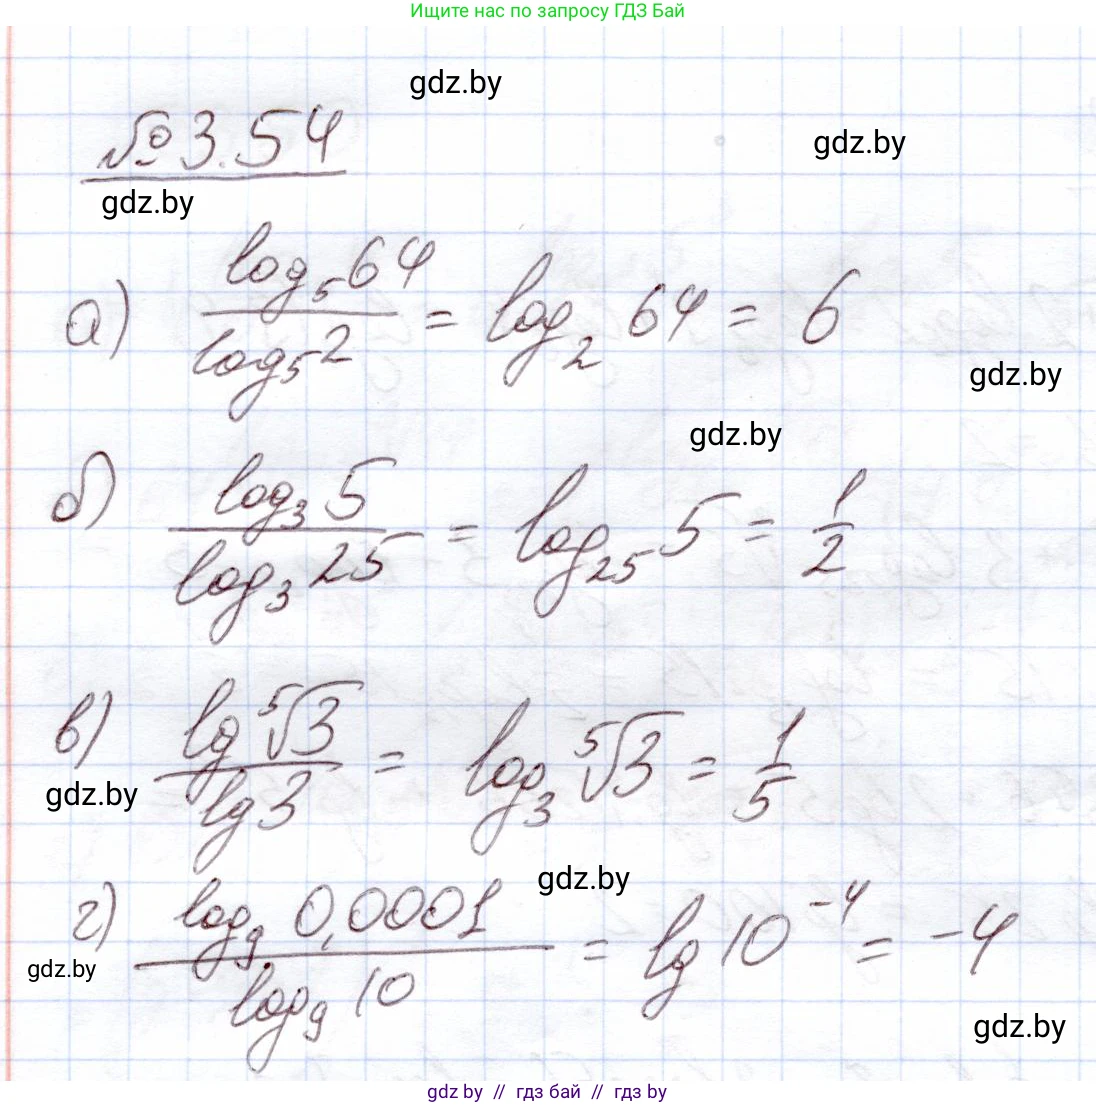 Ищите нас по запросу ГДЗ Бай
gdz.by
№ 3.54
gdz.by
gdz.by
а) log₅64 / log₅2 = log₂ 64 = 6
gdz.by
gdz.by
б) log₃5 / log₃25 = log₂₅5 = 1/2
в) lg ⁵√3 / lg3 = log₃ ⁵√3 = 1/5
gdz.by
gdz.by
г) log₉ 0,0001 / log₉ 10 = lg 10⁻⁴ = -4
gdz.by
gdz.by
gdz by // гдз бай // гдз by